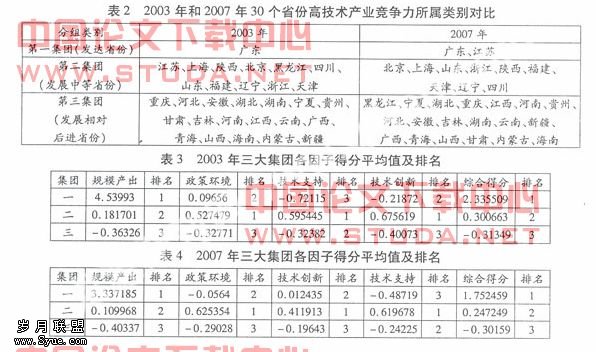 表2 2003年和2007年30个省份高技术产业竞争力所属类别对比
分组类别 2003年 2007年
第一集团(发达省份) 广东 广东、江苏
第二集团 江苏、上海、陕西、北京、黑龙江、四川、 北京、上海、山东、浙江、陕西、福建、
(发展中等省份) 山东、福建、辽宁、浙江、天津 天津、辽宁、四川
第三集团 重庆、河北、安徽、湖北、湖南、宁夏、贵州、 黑龙江、湖北、重庆、江西、河南、贵州、
(发展相对 甘肃、吉林、河南、江西、云南、广西、 河北、安徽、湖南、云南、宁夏、吉林、
后进省份) 青海、山西、海南、内蒙古、新疆 广西、青海、山西、甘肃、内蒙古、海南
表3 2003年三大集团各因子得分平均值及排名
集团 规模产出 排名 政策环境 排名 技术支持 排名 技术创新 排名 综合得分 排名
一 4.53993 1 0.09656 2 -0.72115 3 -0.21872 2 2.335509 1
二 0.181701 2 0.527479 1 0.595445 1 0.675619 1 0.300663 2
三 -0.36326 3 -0.32771 3 -0.32382 2 -0.40073 3 -0.31349 3
表4 2007年三大集团各因子得分平均值及排名
集团 规模产出 排名 政策环境 排名 技术创新 排名 技术支持 排名 综合得分 排名
一 3.337185 1 -0.0564 2 0.012435 2 -0.48719 3 1.752459 1
二 0.109968 2 0.625354 1 0.411913 1 0.619678 1 0.247249 2
三 -0.40337 3 -0.29028 3 -0.19643 3 -0.24225 2 -0.30159 3
中国论文下载中心
HTTP://WWW.STUDA.NET
岁月联盟
www.Syue.com